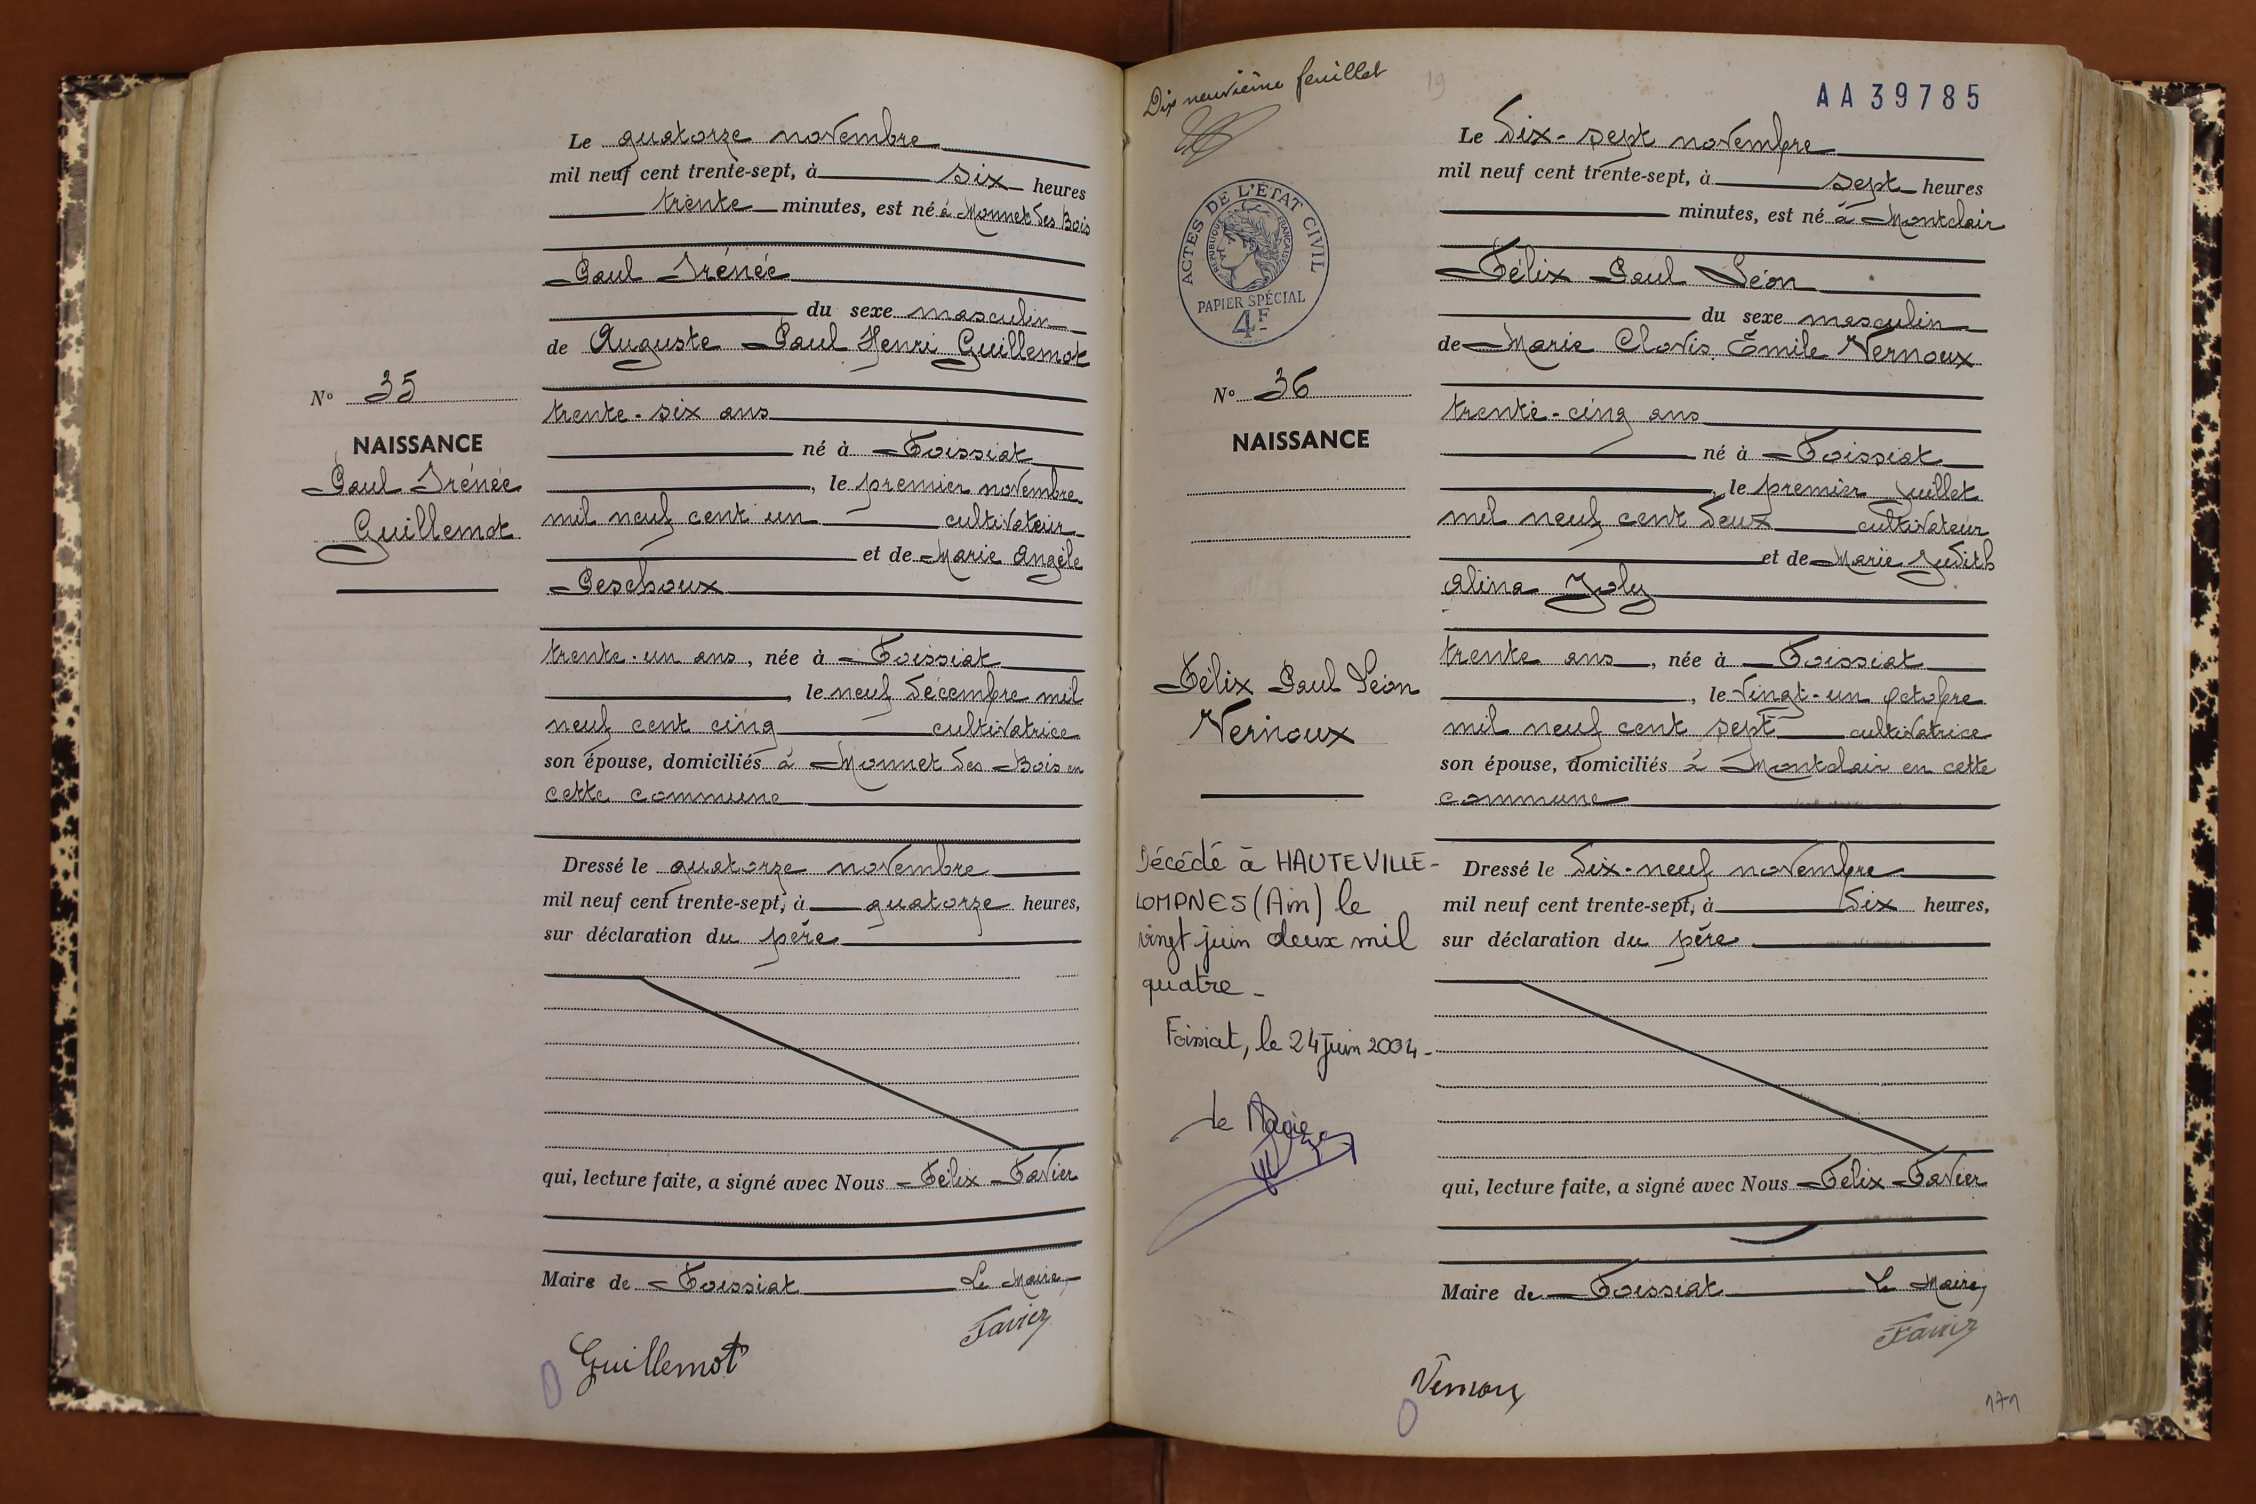 Le quatorze novembre
mil neuf cent trente-sept, à six heures
trente minutes, est né à Monnet des Bois
Paul Irénée
du sexe masculin
de Auguste Paul Henri Guillemot
N° 35
trente-six ans
NAISSANCE
né à Foissiat
Paul Irénée
, le premier novembre
Guillemot
mil neuf cent un cultivateur
et de Marie Angèle
Peschoux
trente-un ans, née à Foissiat
, le neuf décembre mil
neuf cent cinq cultivatrice
son épouse, domiciliés à Monnet des Bois en
cette commune
Dressé le quatorze novembre
mil neuf cent trente-sept, à quatorze heures,
sur déclaration du père
qui, lecture faite, a signé avec Nous Félix Favier
Maire de Foissiat Le Maire,
Favier
Guillemot
Dix neuvième feuillet
19
AA39785
Le dix-sept novembre
mil neuf cent trente-sept, à sept heures
minutes, est né à Montclair
ACTES DE L'ÉTAT CIVIL
RÉPUBLIQUE FRANÇAISE
PAPIER SPÉCIAL
4F
Félix Paul Léon
du sexe masculin
de Marie Clovis Émile Vernoux
N° 36
trente-cinq ans
NAISSANCE
né à Foissiat
, le premier juillet
mil neuf cent deux cultivateur
et de Marie Judith
Alina Joly
trente ans, née à Foissiat
Félix Paul Léon
, le vingt-un octobre
Vernoux
mil neuf cent sept cultivatrice
son épouse, domiciliés à Montclair en cette
commune
Décédé à HAUTEVILLE-
LOMPNES (Ain) le
vingt juin deux mil
quatre -
Foissiat, le 24 juin 2004 -
Le Maire
Dressé le dix-neuf novembre
mil neuf cent trente-sept, à dix heures,
sur déclaration du père
qui, lecture faite, a signé avec Nous Félix Favier
Maire de Foissiat Le Maire,
Favier
Vernoux
171